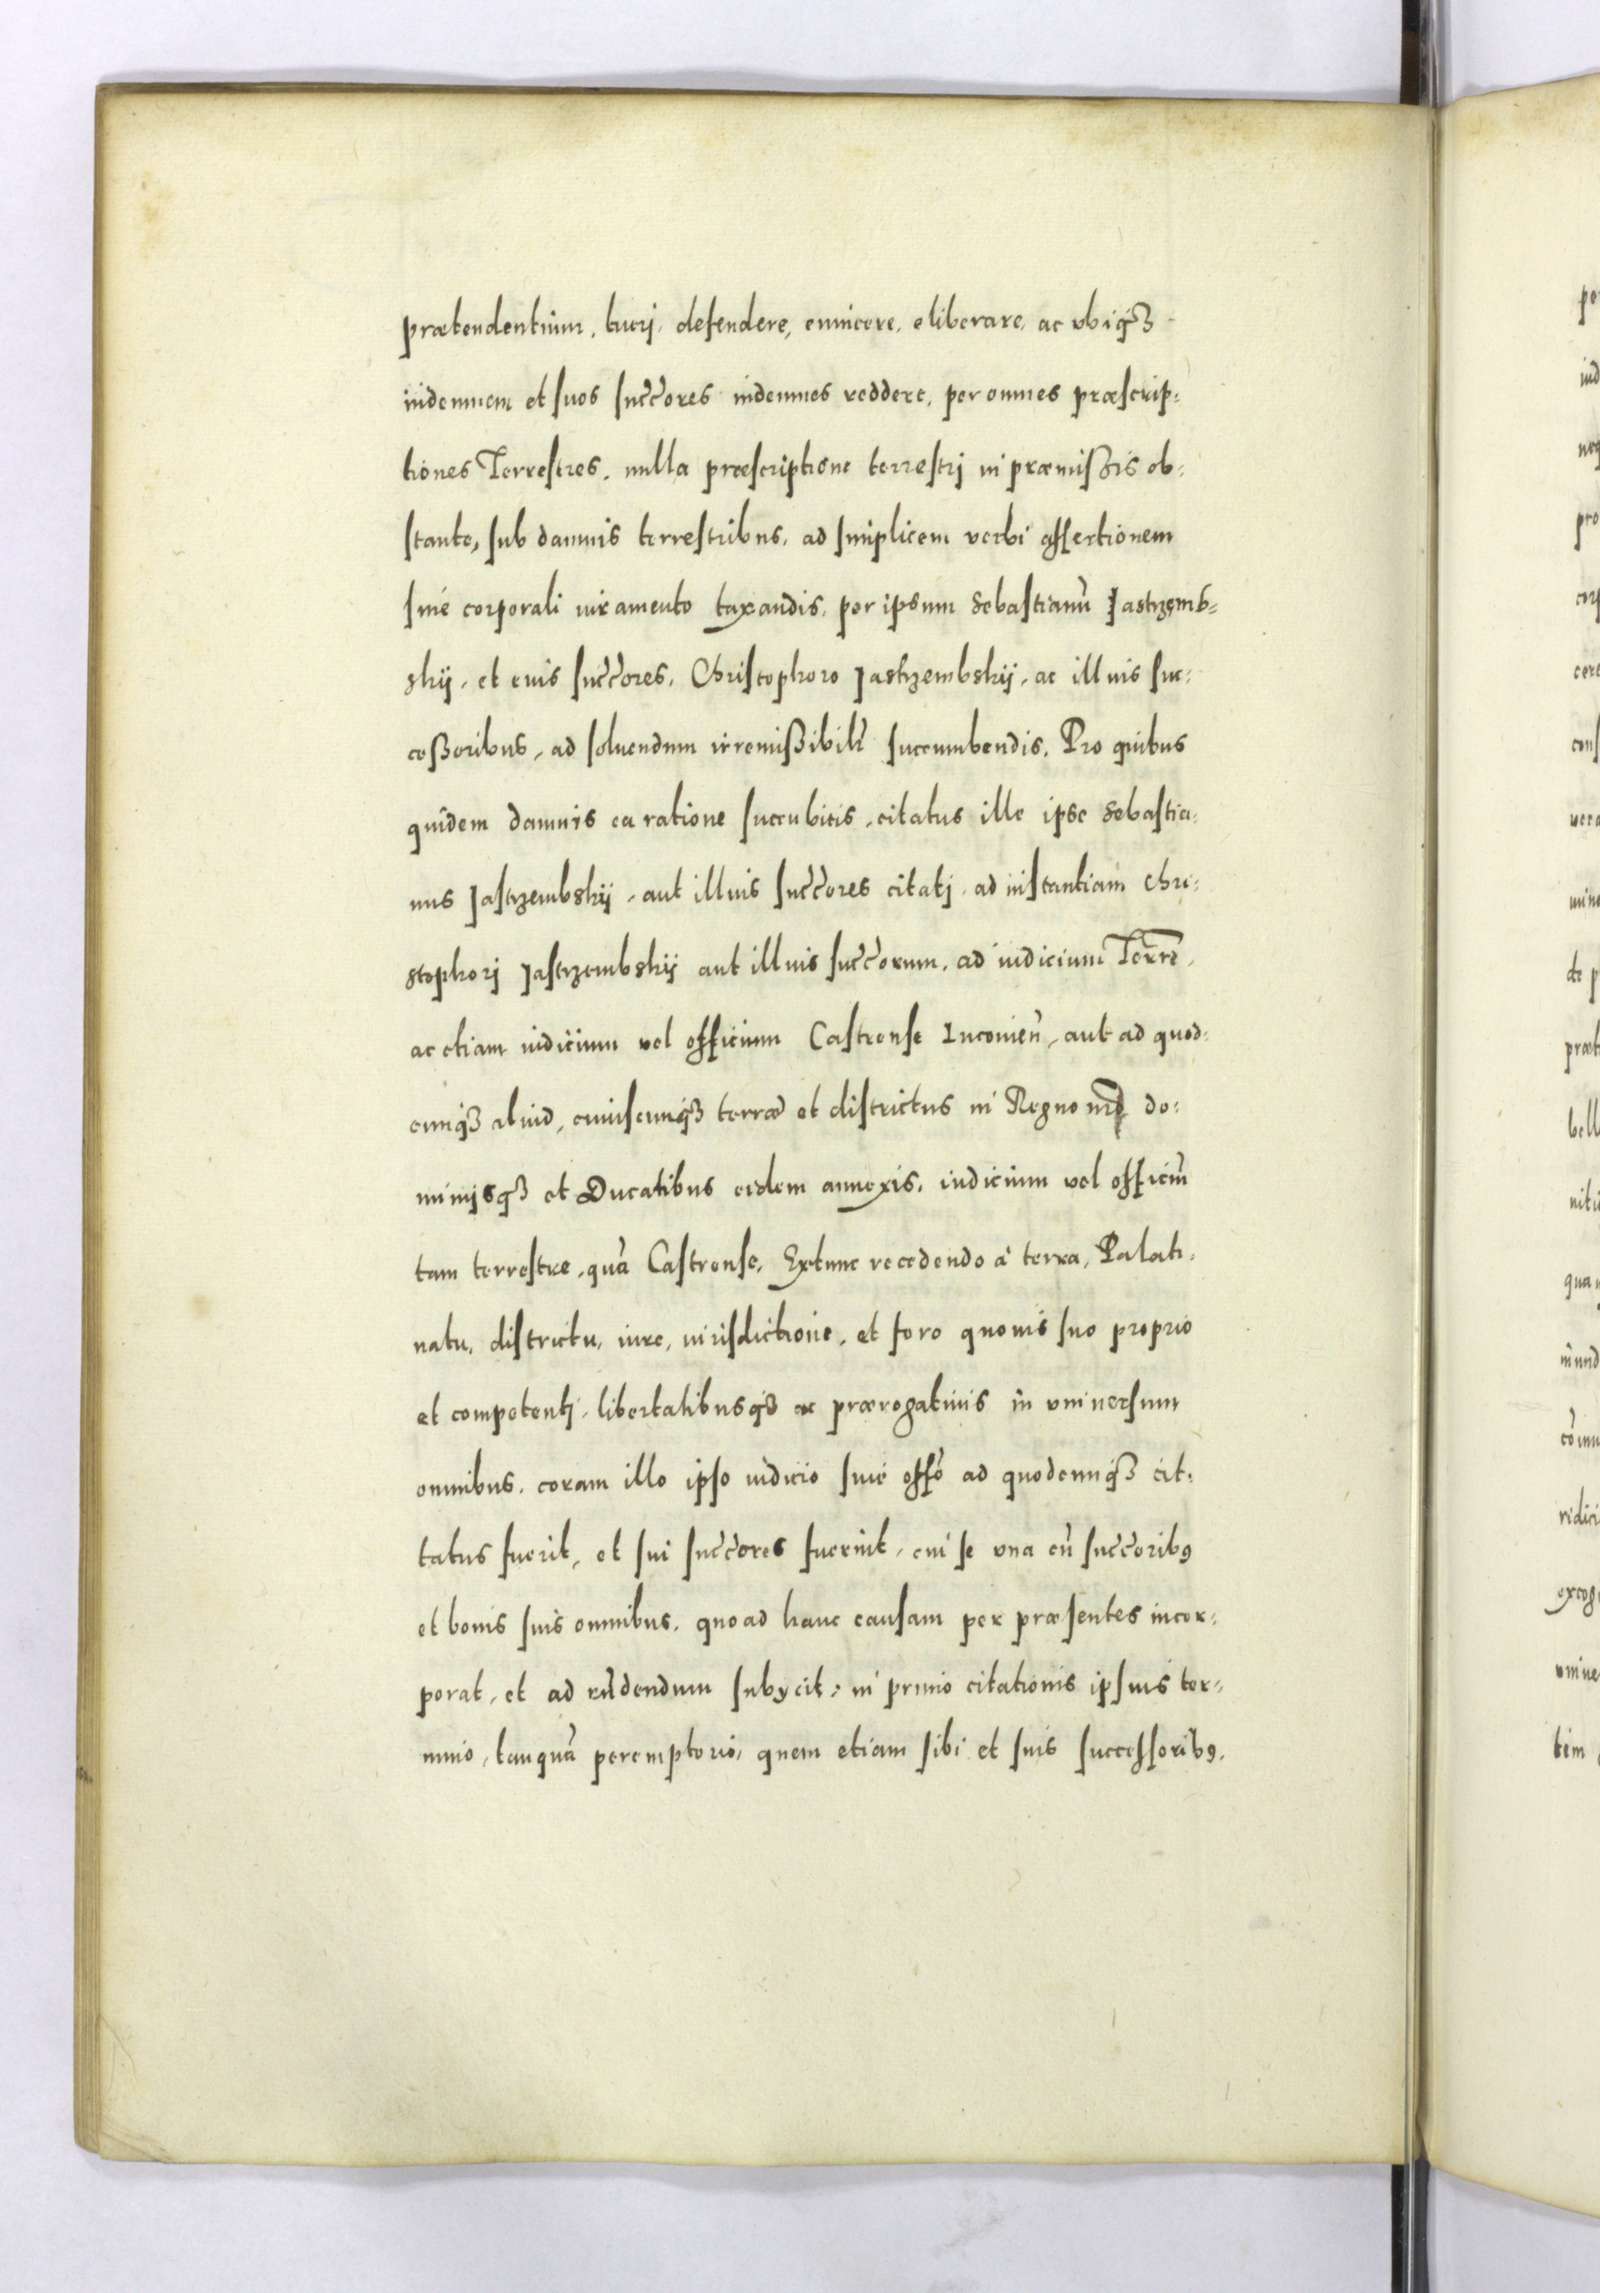 prætendentium, tuerj, defendere, euincere, eliberare, ac vbiqꝫ
indemnem et suos succ̃ores indemnes reddere, per omnes præscrip-
tiones Terrestres, nulla præscriptione terrestrj in præmißis ob-
stante, sub damnis terrestribus, ad simplicem verbi assertionem
sine corporali iuramento taxandis, per ipsum Sebastianũ Jastrzemb-
skij, et eius succ̃ores, Christophoro Jastrzembskij, ac illius suc-
ceßoribus, ad soluendum irremißibilr̃ succumbendis. Pro quibus
quidem damnis ea ratione succubitis, citatus ille ipse Sebastia-
nus Jastrzembskij, aut illius succ̃ores citatj, ad instantiam Chri-
stophorj Jastrzembskij aut illius succ̃orum, ad iudicium Terrẽ,
ac etiam iudicium vel officium Castrense Inconień, aut ad quod-
cunqꝫ aliud, cuiuscunqꝫ terræ et districtus in Regno nrõ do-
minijsqꝫ et Ducatibus eidem annexis, iudicium vel officiũ
tam terrestre, quã Castrense, Extunc recedendo à terra, Palati-
natu, districtu, iure, iurisdictione, et foro quouis suo proprio
et competentj, libertatibusqꝫ ac prærogatiuis in vniuersum
omnibus, coram illo ipso iudicio siue offõ ad quodcunqꝫ cit-
tatus fuerit, et sui succ̃ores fuerint, cui se vna cũ succ̃oribꝰ
et bonis suis omnibus, quoad hanc causam per præsentes incor-
porat, et ad rñdendum subycit, in primo citationis ipsius ter-
mino, tanquã peremptorio, quem etiam sibi et suis successoribꝰ,